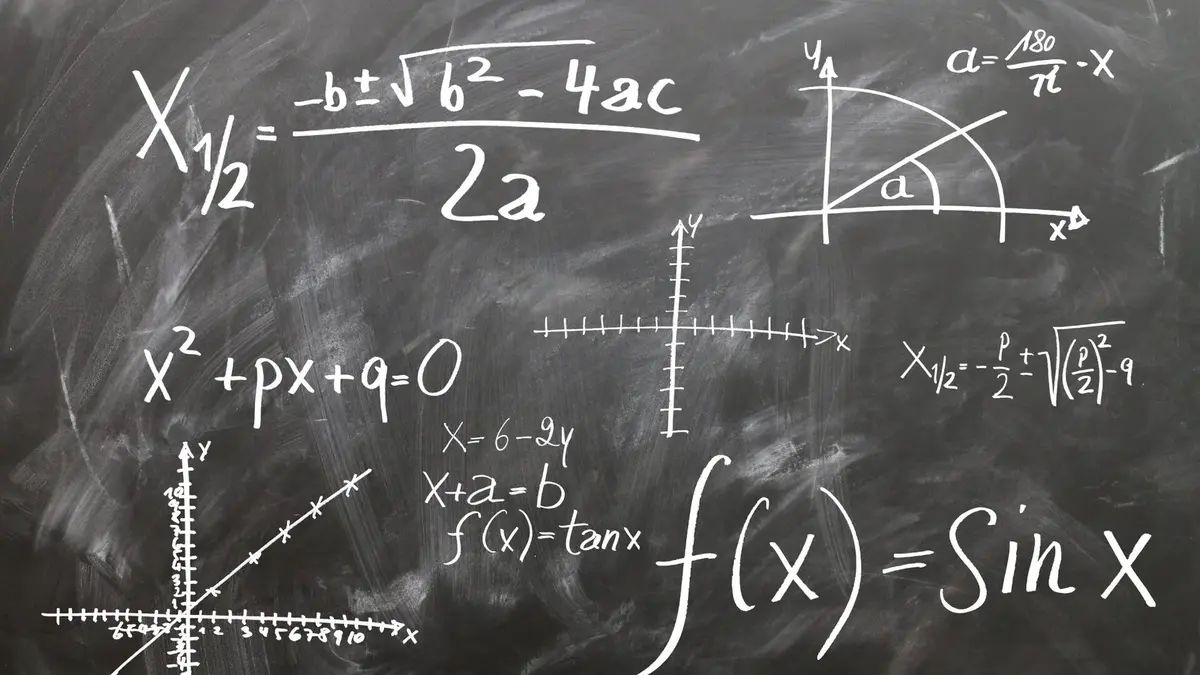 X₁/₂ = (-b ± √(b² - 4ac)) / 2a
y
a = 180/π · x
a
x
y
x
x² + px + q = 0
X₁/₂ = - p/2 ± √((p/2)² - q
x = 6 - 2y
x + a = b
f(x) = tan x
f(x) = Sin x
y
10
1 2 3 4 5 6 7 8 9 10 x